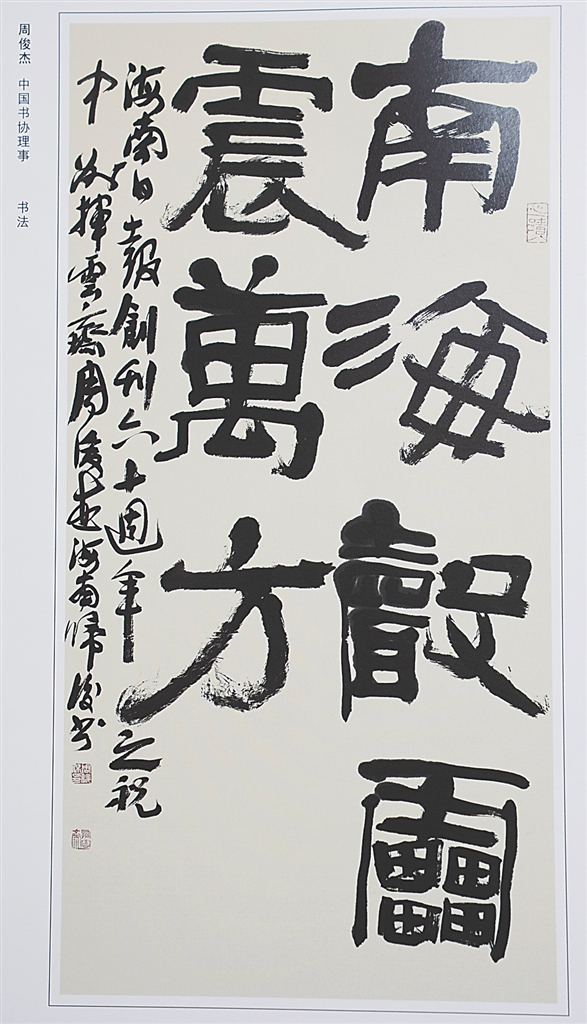 周俊杰 中国书协理事 书法
南海靁
震萬方
海南日報創刊六十週年之祝
中州揮雲齋周俊杰海南歸後书